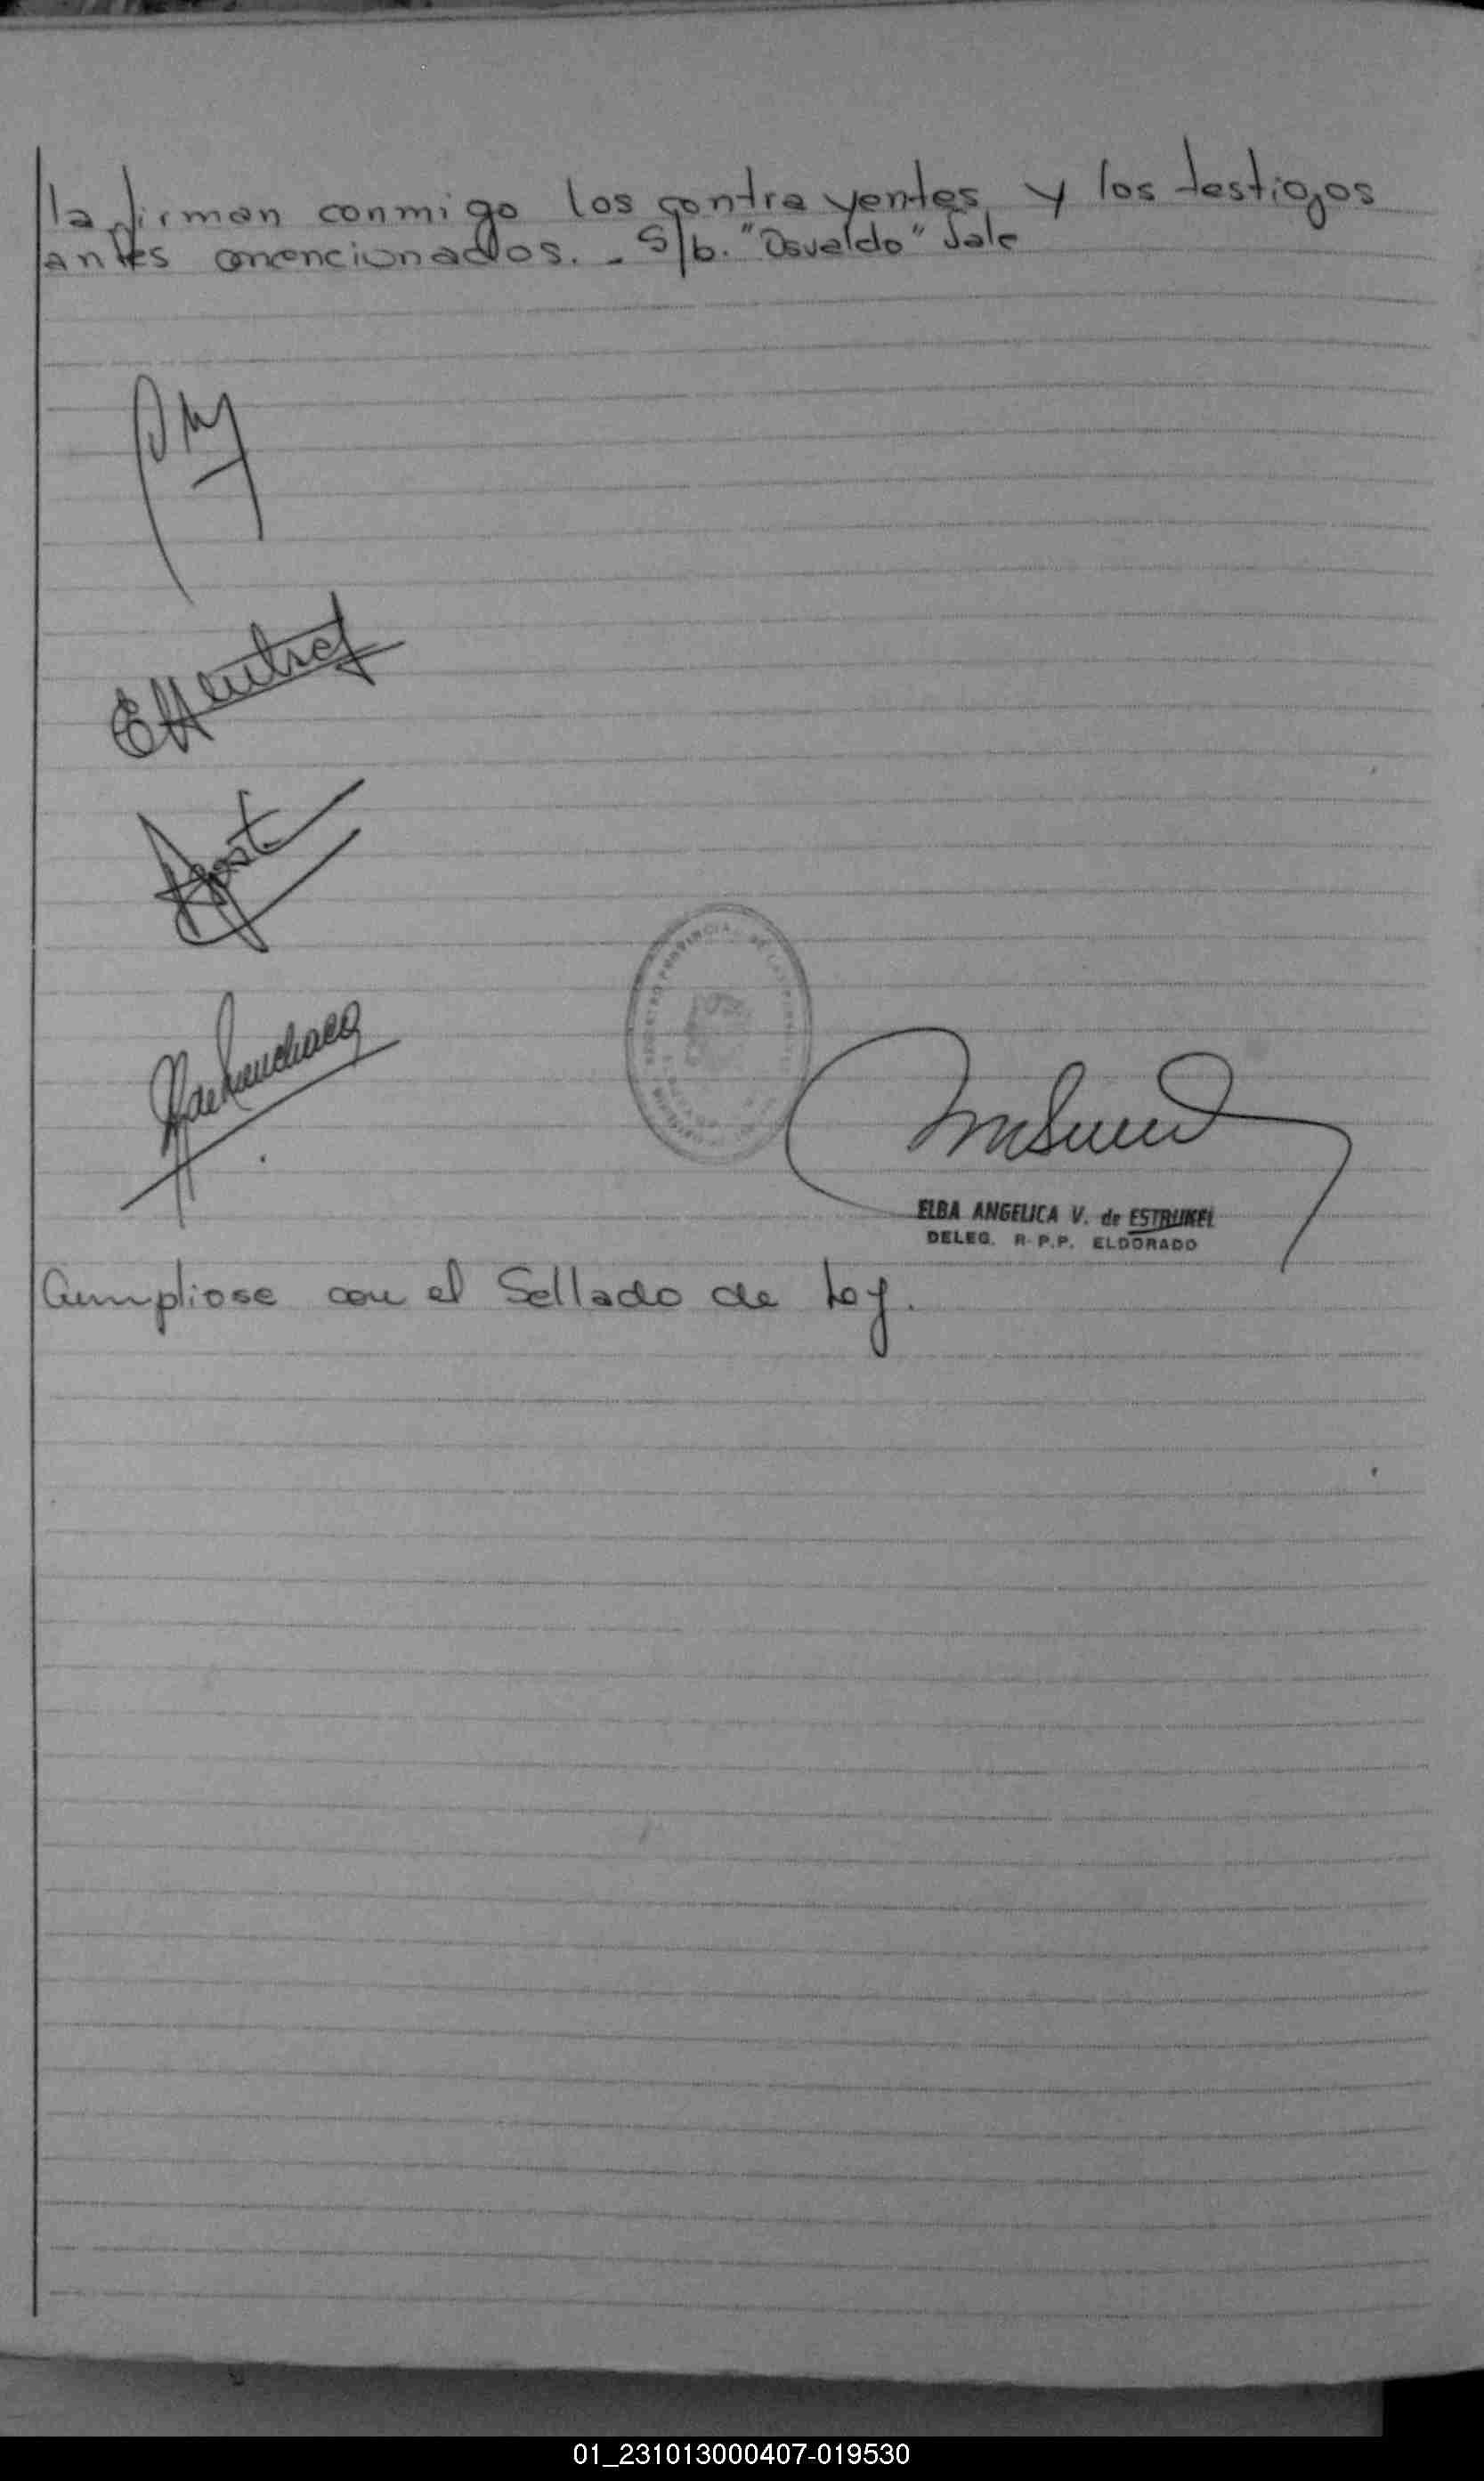 la firman conmigo los contrayentes y los testigos
antes mencionados. - S/b. "Osvaldo" Vale
REGISTRO PROVINCIAL DE LAS PERSONAS
ELBA ANGELICA V. de ESTRUKEL
DELEG. R.P.P. ELDORADO
Cumpliose con el Sellado de Ley.
01_231013000407-019530